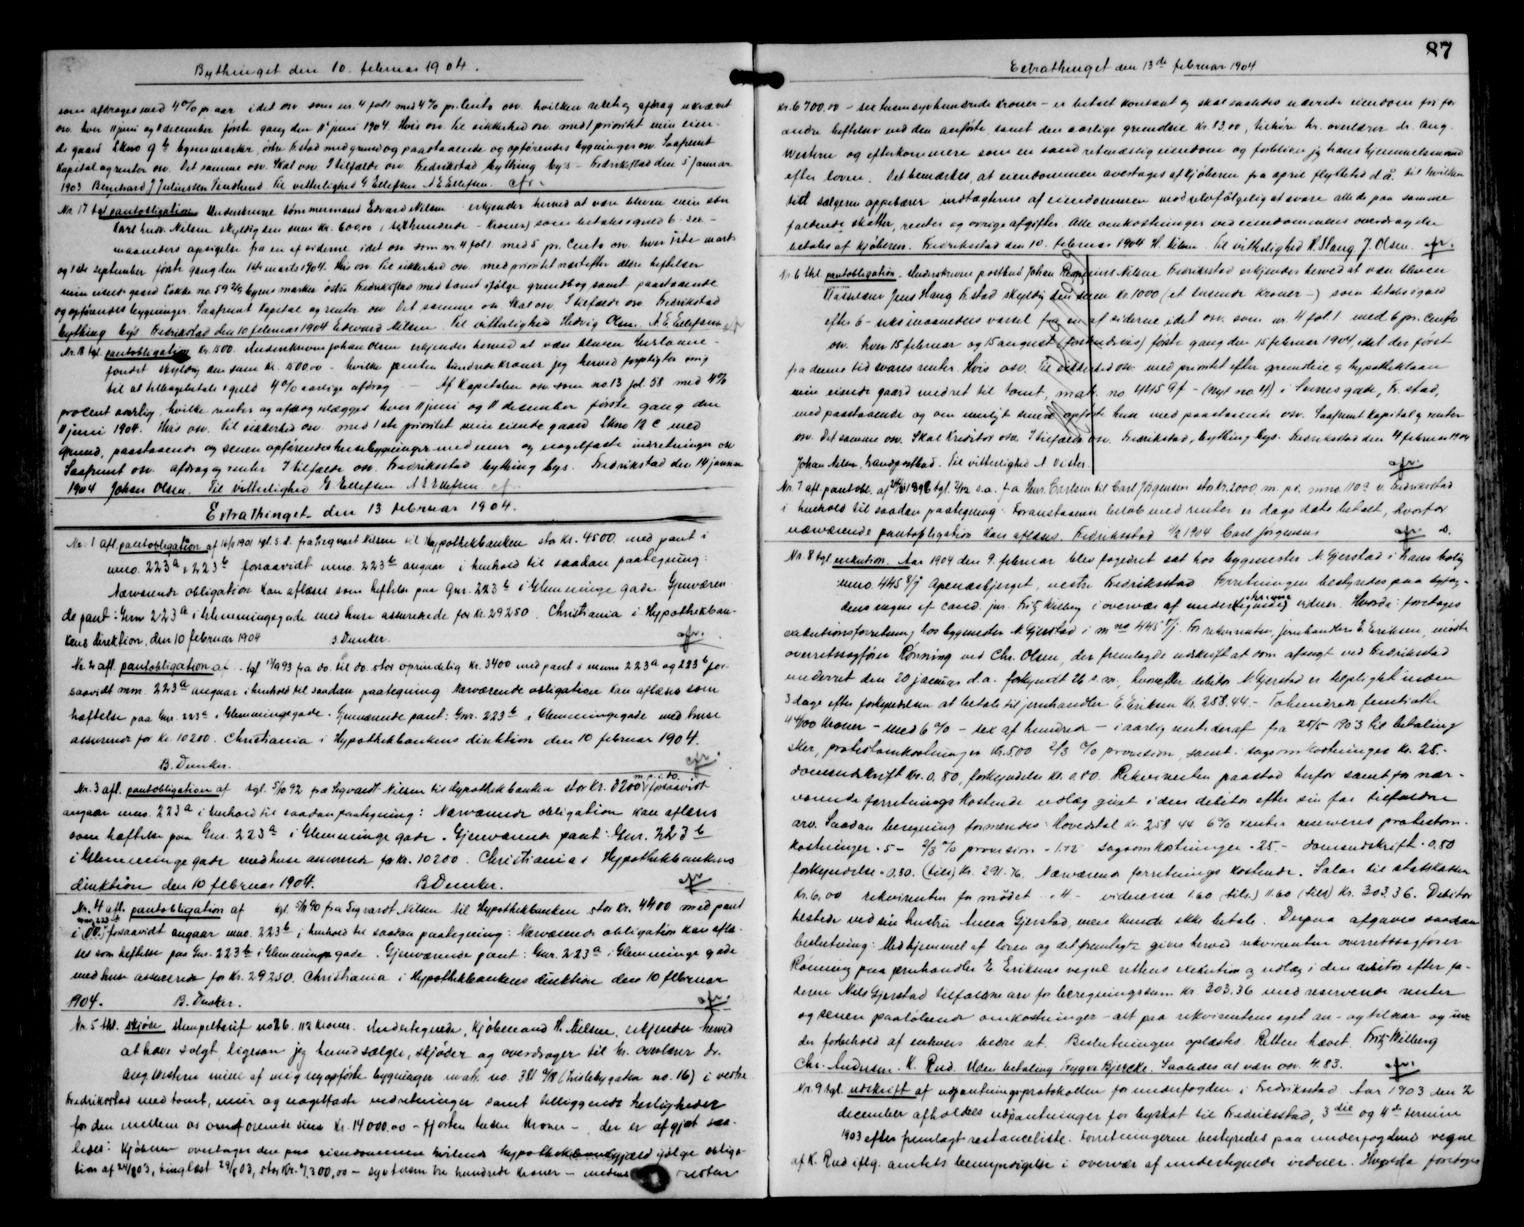 Bythinget den 10. februar 1904.
som afdrages med 4% pr aar idet osv som nr. 4 fol 1 med 4% pr. cento osv. hvilken rente og afdrag ukrævet
osv. hver 11 juni og 11 december første gang den 11te juni 1904. Hvis osv. Til sikkerhed osv. med 1 prioritet min eien-
de gaard Lkno 9b byens marker, østre F.stad med grund og paastaaende og opførendes bygninger osv Saafremt
Kapital og renter osv. Det samme osv. Skal osv. I tilfælde osv. Fredrikstad bything bys - Fredrikstad den 5 januar
1903 Bernhard J Juliussen Lindlund Til vitterlighed G Ellefsen A E Ellefsen. afr.
Nr. 17 tgl pantobligation Underskrevne tømmermand Edvard Nilsen erkjender herved at være bleven min søn
Carl Nilsen skyldig den sum kr. 600,00 (sexhundrede - kroner) som betales igjen 6 - sex -
maaneders opsigelse fra en af siderne idet osv som nr. 4 fol 1 med 5 pr. cento osv. hver 1ste marts
og 1ste september første gang den 1ste marts 1904. Hvis osv. Til sikkerhed osv. med prioritet næstefter ældre heftelser
min eiende gaard Løkke no 59 byens marker østre Fredrikstad med tomt ifølge grundbog samt paastaaende
og opførendes bygninger. Saafremt kapital og renter osv. Det samme osv Skal osv. I tilfælde osv. Fredrikstad
bything bys Fredrikstad den 10 februar 1904 Edward Nilsen. Til vitterlighed Hedvig Olsen. A. E. Ellefsen afr
Nr. 18 tgl. pantobligation kr. 1500. Underskrevne Johan Olsen erkjender herved at være bleven
fondet skyldig den sum kr. 1500.00 - hvilke femten hundrede kroner jeg herved forpligter mig
til at tilbagebetale i guld 4% aarlige afdrag - Af Kapitalen osv som no. 13 fol. 58 med 4%
procent aarlig, hvilke renter og afdrag erlægges hver 11 juni og 11 december første gang den
11 juni 1904. Hvis osv. Til sikkerhed osv. med 1ste prioritet min eiende gaard Lkno 12 C med
grund, paastaaende og senere opførendes huse bygninger med mur og nagelfaste indretninger osv
Saafremt osv. afdrag og renter I tilfælde osv. Fredrikstad bything bys. Fredrikstad den 14 januar
1904 Johan Olsen. Til vitterlighed G Ellefsen A E Ellefsen afr.
Extrathinget den 13 februar 1904.
Nr. 1 afl. pantobligation af 1901 tgl. s.d. fra Sigvart Nilsen til Hypothekbanken stor kr. 4500 med pant i
mno. 223a, 223b forsaavidt mno. 223b angaar i henhold til saadan paategning:
Nærværende obligation kan aflæses som heftelse paa Gnr. 223b i Glemminge gade. Gjenværen-
de pant: Gnr 223a i Glemmingegade med huse assurerede for kr. 29250. Christiania i Hypothekban-
kens direktion, den 10 februar 1904 B. Dunker. afr.
Nr. 2 afl. pantobligation af tgl 93 fra do. til do. stor oprindelig kr. 3400 med pant i mnno 223a og 223b for-
saavidt mno. 223a angaar i henhold til saadan paategning Nærværende obligation kan aflæses som
heftelse paa Gnr. 223a i Glemmingegade. Gjenværende pant: Gnr. 223b i Glemmingegade med huse
assurerede for kr. 10200. Christiania i Hypothekbankens direktion den 10 februar 1904.
B. Dunker. afr
Nr. 3 afl. pantobligation af tgl. 92 fra Sigvardt Nilsen til Hypothekbanken stor kr. 3200 m.p.i do. forsaavidt
angaar mno. 223a i henhold til saadan paategning: Nærværende obligation kan aflæses
som heftelse paa Gnr. 223a i Glemminge gade. Gjenværende pant: Gnr. 223b
i Glemminge gade med huse assurerede for kr. 10200. Christiania i Hypothekbankens
direktion den 10 februar 1904. B. Dunker. afr
Nr. 4 afl. pantobligation af tgl. 90 fra Sigvardt Nilsen til Hypothekbanken stor kr. 4400 med pant
i do. forsaavidt angaar mno. 223b, i henhold til saadan paategning: Nærværende obligation kan aflæ-
ses som heftelse paa Gnr. 223b i Glemminge gade. Gjenværende pant: Gnr. 223a i Glemminge gade
med huse assurerede for kr. 29250. Christiania i Hypothekbankens direktion den 10 februar
1904. B. Dunker. afr.
Nr. 5 thl. skjøde stempeltarif no 26. 112 kroner. Undertegnede, Kjøbmand H. Nilsen, erkjender herved
at have solgt, ligesom jeg herved sælger, skjøder og overdrager til hr. overlærer dr.
Aug. Western mine af mig nyopførte bygninger matr. no. 381 (Lislebygaden no. 16) i vestre
Fredrikstad med tomt, mur og nagelfaste indretninger samt tilliggende herligheder
for den mellem os omforenede sum Kr. 14000.00 - fjorten tusen kroner -, der er afgjort saa-
ledes: Kjøberen overtager den paa eiendommen hvilende hypothekbankgjæld ifølge obliga-
tion af 24/8 03, thinglæst 29/8 03, stor Kr. 7,300,00 - syv tusen tre hundrede kroner - medens resten
87
Extrathinget den 13de februar 1904
kr. 6700.00 - sex tusen syvhundrede kroner - er betalt kontant og skal saaledes nævnte eiendom fri for
andre heftelser end den anførte samt den aarlige grundleie kr. 83,00, tilhøre hr. overlærer dr. Aug.
Western og efterkommere som en sand retmæssig eiendom og forbliver jeg hans hjemmelsmand
efter loven. Det bemærkes, at eiendommen overtages af kjøberen fra april flyttetid d.å. til hvilken
tid sælgeren oppebærer indtægterne af eiendommen mod selvfølgelig at svare alle de paa samme
faldende skatter, renter og øvrige afgifter. Alle omkostninger ved eiendommens overdragelse
betales af kjøberen. Fredrikstad den 10. februar 1904 H. Nilsen. Til vitterlighed K. Stang J. Olsen. afr.
Nr. 6 thl. pantobligation. Underskrevne postbud Johan Nilsen Fredrikstad erkjender herved at være bleven
Jens Haug F.stad skyldig den sum kr. 1000 (et tusende kroner -) som betales igjen
efter 6 - sex maaneders varsel fra en af siderne idet osv. som nr 4 fol 1 med 6 pr. cento
osv. hver 15 februar og 15 august (forskudsvis) første gang den 15 februar 1904, idet der først
fra denne tid svares renter. Hvis osv. Til sikkerhed osv. med prioritet efter grundleie og hypotheklaan
min eiende gaard med ret til tomt, matr. no 4459f - (nyt no. 4) i gade, Fr. stad,
med paastaaende og om muligt senere opført hus med paastaaende osv. Saafremt kapital og renter
osv. Det samme osv. Skal kreditor osv. I tilfælde osv. Fredrikstad, bything bys. Fredrikstad den 4 februar 1904
Johan Nilsen, Landpostbud. Til vitterlighed A Vister. afr.
Nr. 7 afl. pantobl. af 1898 tgl. s.a. fra Carlsen til Carl Jørgensen stor kr. 2000 m. p.i. mno 110a v. Fredrikstad
i henhold til saadan paategning: Foranstaaende beløb med renter er dags dato betalt, hvorfor
nærværende pantobligation kan aflæses. Fredrikstad 1904 Carl Jørgensen afr
Nr. 8 tgl exekution. Aar 1904 den 9. februar blev fogedret sat hos bygmester N. Gjerstad i hans bolig
mno 445 Apenæsbjerget, vestre Fredrikstad Forretningen bestyredes paa byfog-
dens vegne af cand. jur. Fritz Wilberg i overvær af undertegnede vidner. Hvorda: foretoges
exekutionsforretning hos bygmester N. Gjerstad i mno 445. For rekvirenten, jernhandler E. Eriksen, mødte
overretssagfører Rønning ved Chr. Olsen, der fremlagde udskrift at dom afsagt ved Fredrikstad
underret den 20 januar d.a. forkyndt 26 s.m, hvorefter debitor N. Gjerstad er tilpligtet inden
3 dage efter forkyndelsen at betale til jernhandler E. Eriksen kr. 258.44.- Tohundrede femtiotte
44/100 kroner - med 6% - sex af hundrede - i aarlig rente deraf fra 25/5 1903 til betaling
sker, protestomkostninger kr. 5.00 2/3 % provision, samt i sagsomkostninger kr. 25.-
domsudskrift kr. 0,80, forkyndelse kr. 0.80. Rekvirenten paastod herfor samt for nær-
værende forretnings kostende udlæg givet i den debitor efter sin far tilfaldne
arv. Saadan beregning formendes: Hovedstol kr. 258 44 6% renter reserveres protestom-
kostninger - 5 - 2/3 % provision - 1.72 sagsomkostninger - 25.- domsudskrift - 0.80
forkyndelse - 0.80. (tils) kr. 291.76. Nærværende forretnings kostende. Salær til statskassen
Kr. 6.00 rekvirenten for mødet - 4 - vidnerne 1.60 (tils) 11.60 (tils) kr. 303.36. Debitor
tilstede ved sin hustru Anna Gjerstad, mere kunde ikke betale. Derpaa afgaves saadan
beslutning: Med hjemmel af loven og det fremlagte gives herved rekvirenten overretssagfører
Rønning paa jernhandler E. Eriksens vegne rettens exekution og udlæg i den debitor efter fa-
deren Nils Gjerstad tilfaldne arv for beregningssum kr. 303.36 med reserverede renter
og senere paaløbende omkostninger - alt paa rekvirentens eget an- og tilsvar og un-
der forbehold af enhvers bedre ret. Beslutningen oplæstes. Retten hævet. Fritz Wilberg
Chr. Andersen. K. Rud. Uden betaling Trygve Bjercke. Saaledes at være osv. 4.83. afr.
Nr. 9 tgl. udskrift af udpantningsprotokollen for underfogden i Fredrikstad. Aar 1903 den 2
december afholdtes udpantninger for byskat til Fredrikstad, 3die og 4de termin
1903 efter fremlagt restanceliste. Forretningerne bestyredes paa underfogdens vegne
af K. Rud iflg. amtets bemyndigelse i overvær af undertegnede vidner. Hvorda foretoges